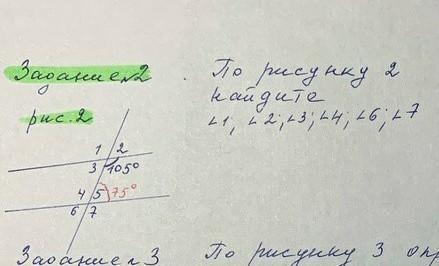 Задание №2 . По рисунку 2
найдите
рис. 2 ∠1; ∠2; ∠3; ∠4; ∠6; ∠7
1 2
3 105°
4 5 75°
6 7
Задание №3 По рисунку 3 опр